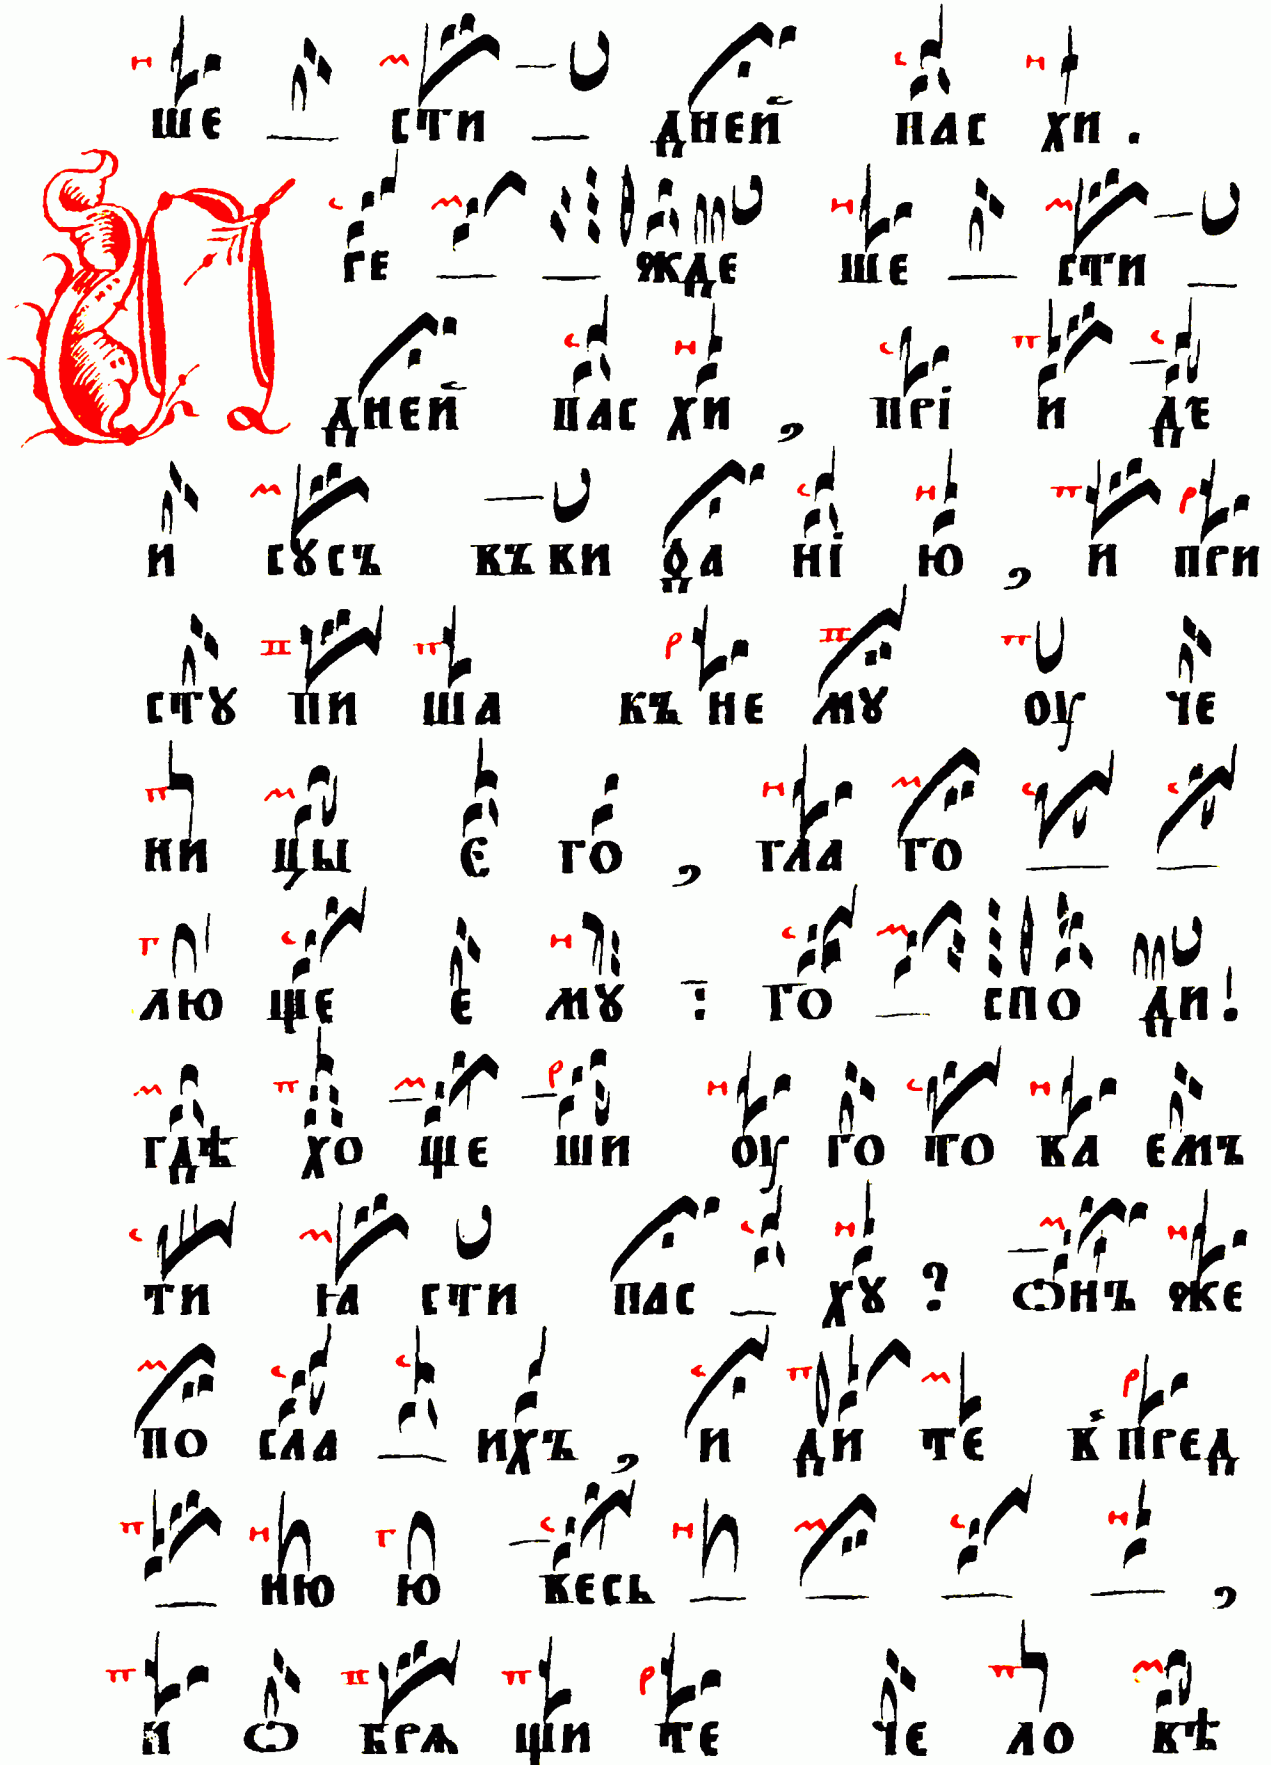 ШЕ — СТИ — ДНЕЙ ПАС ХИ .
П ГЕ — — ЖДЕ ШЕ — СТИ —
ДНЕЙ ПАС ХИ , ПРІ И ДЕ
И СꙊСЪ ВЪ ВИ ѲА НІ Ю , И ПРИ
СТꙊ ПИ ША КЪ НЕ МꙊ ОУ ЧЕ
НИ ЦЫ Є ГО , ГЛА ГО — —
ЛЮ ЩЕ Е МꙊ : ГО — СПО ДИ !
ГДѢ ХО ЩЕ ШИ ОУ ГО ТО ВА ЕМЪ
ТИ ꙖСТИ ПАС — ХꙊ ? ѾНЪ ЖЕ
ПО СЛА — ИХЪ , И ДИ ТЕ В ПРЕД
— НЮ Ю ВЕСЬ — — — — ,
И Ѡ БРѦ ЩИ ТЕ ЧЕ ЛО ВѢ